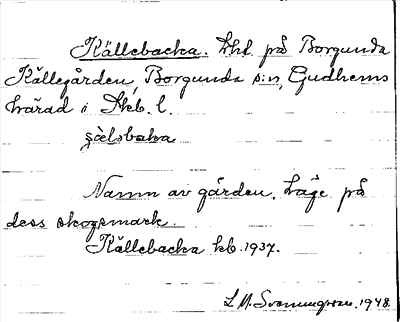 Källebacka. Lhl. på Borgunda
Källegården, Borgunda s:n, Gudhems
härad i Skb. l.
şälsbaka
Namn av gården. Läge på
dess skogsmark.
Källebacka kb. 1937.
L. M. Svennungsson. 1948.